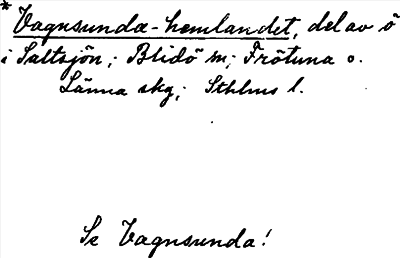 * Vagnsunda-hemlandet, del av ö
i Saltsjön; Blidö sn; Frötuna o.
Länna skg; Sthlms l.
Se Vagnsunda!